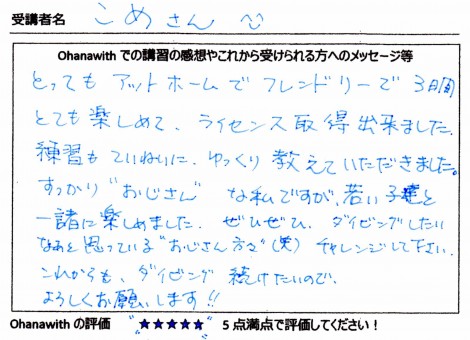 受講者名 こめさん
Ohanawith での講習の感想やこれから受けられる方へのメッセージ等
とっても アットホームで フレンドリーで 3日間
とても楽しめて、ライセンス取得出来ました。
練習もていねいに、ゆっくり教えていただきました。
すっかり"おじさん"な私ですが、若い子達と
一諸に楽しめました。ぜひぜひ、ダイビングしたい
なあと思っている"おじさん方々"(笑) チャレンジして下さい。
これからも、ダイビング 続けたいので、
よろしくお願いします!!
Ohanawith の評価 "★★★★★" 5 点満点で評価してください！